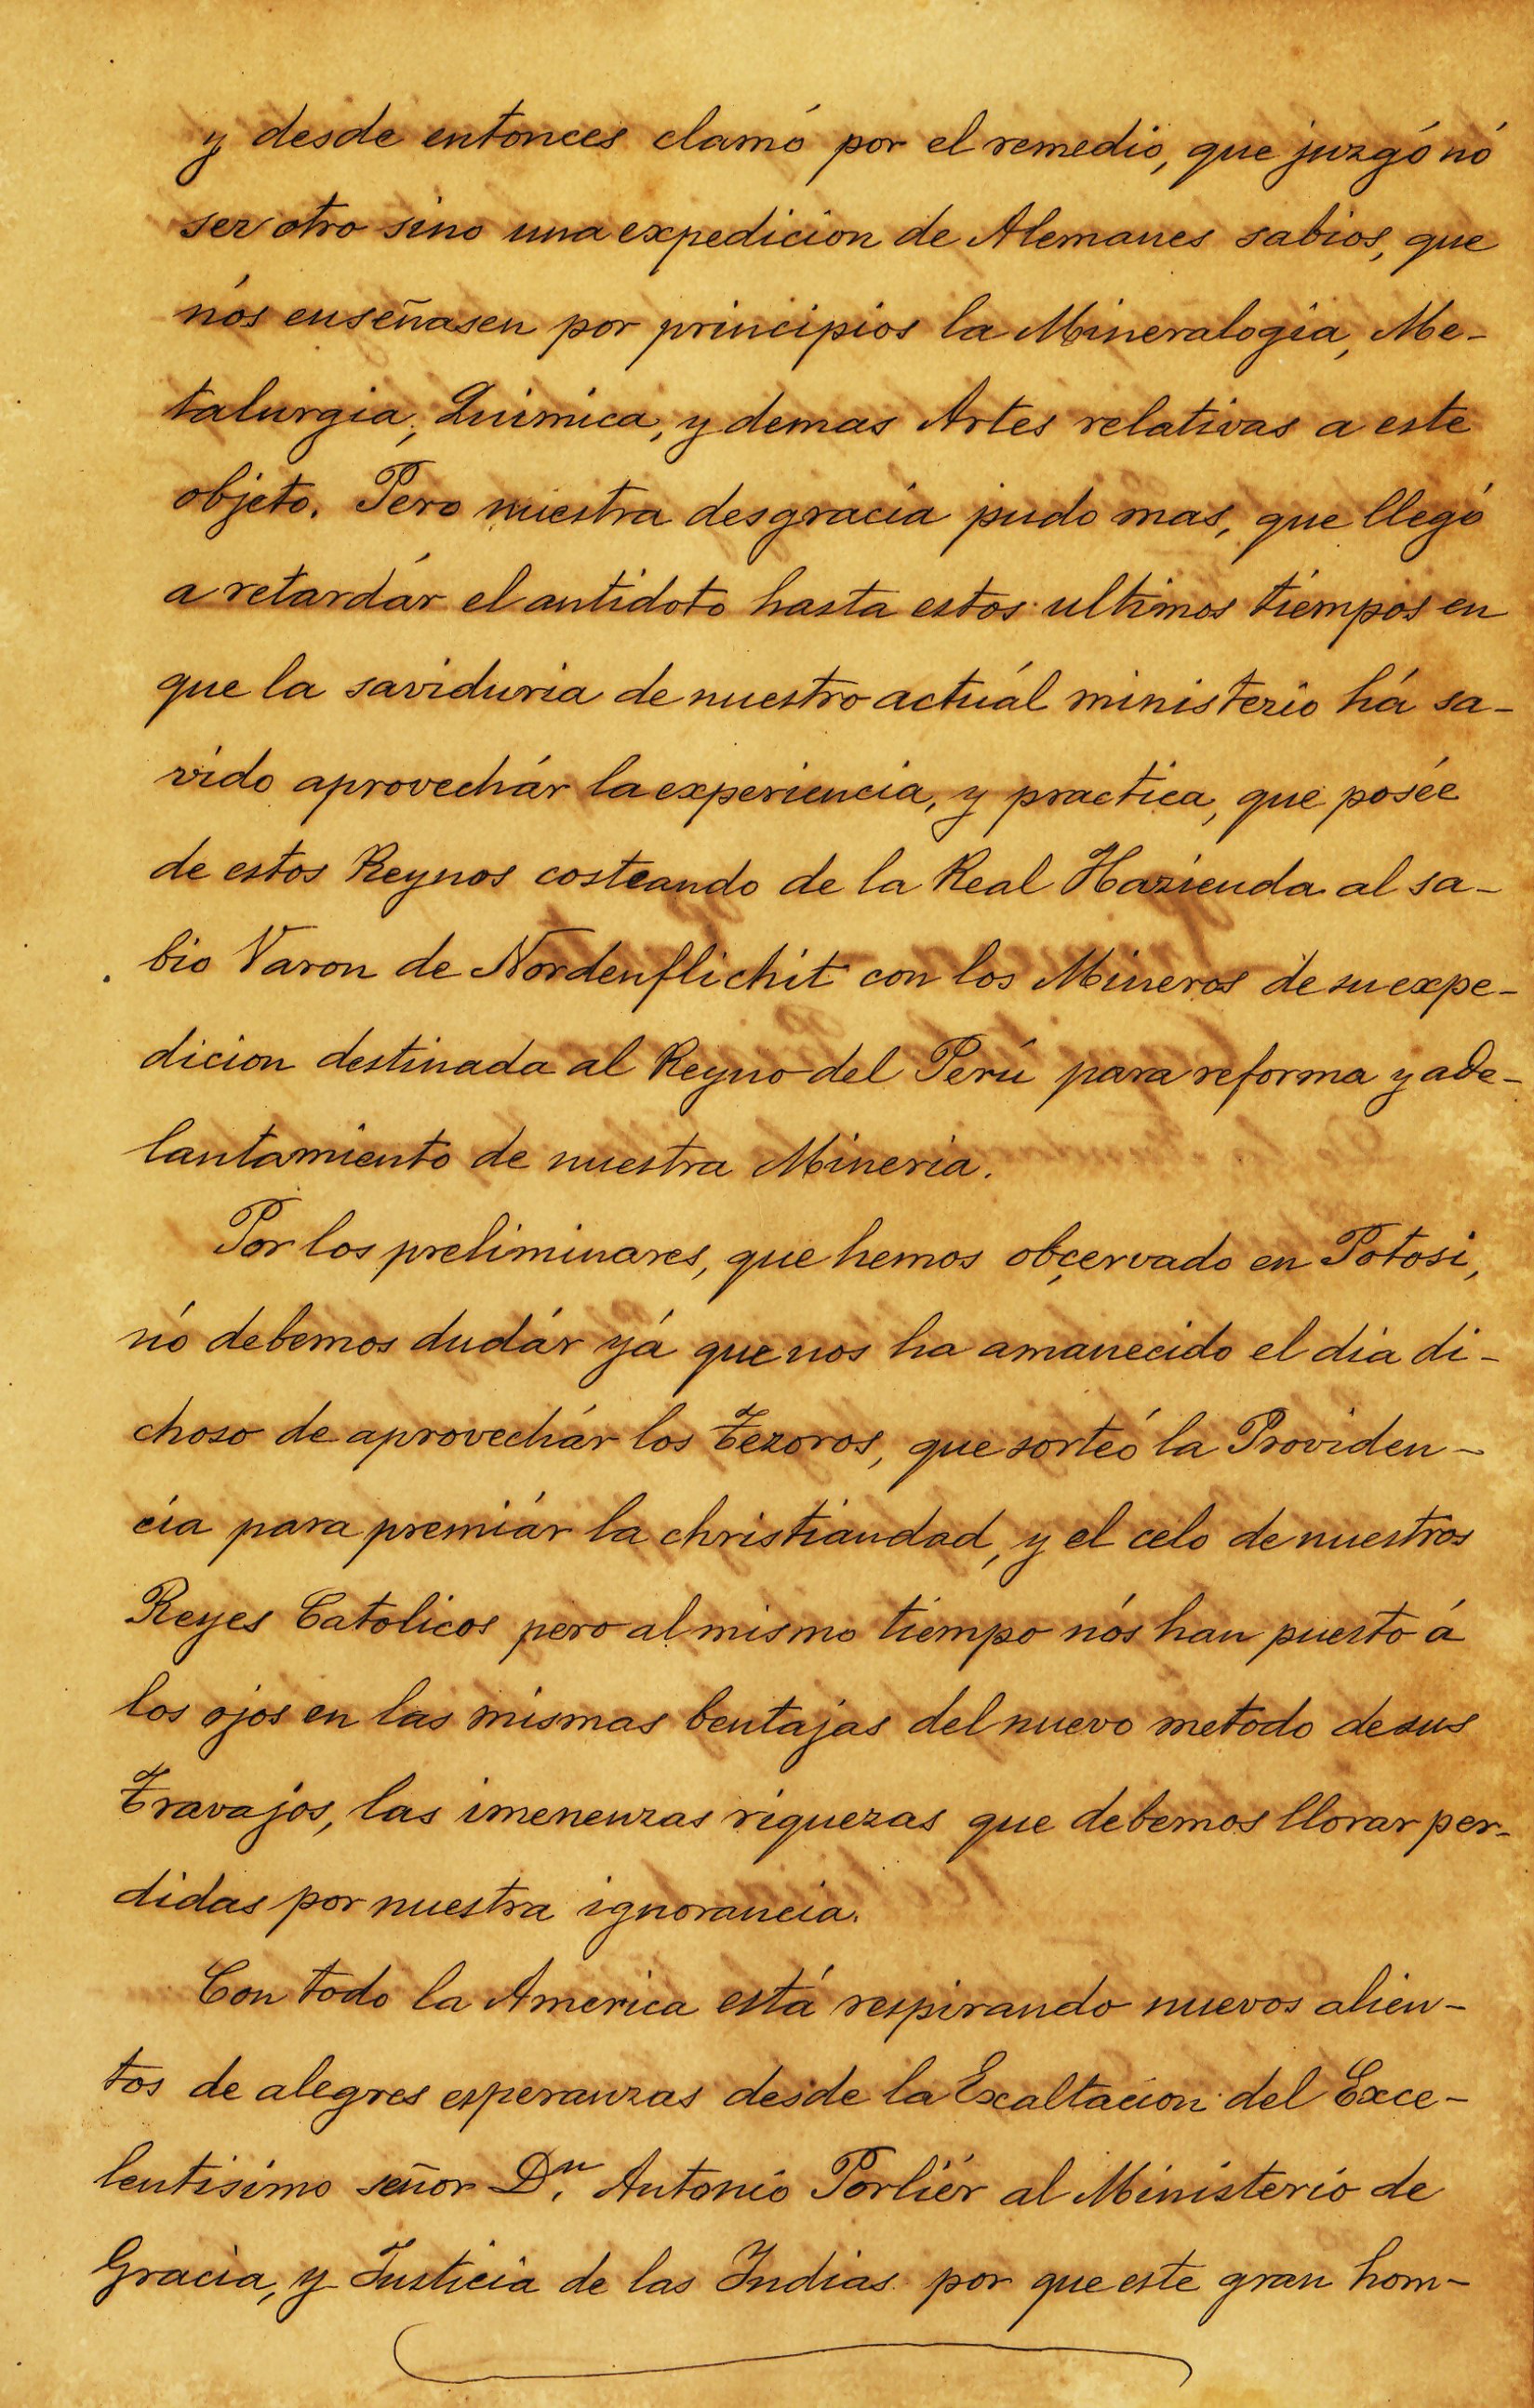 y desde entonces clamó por el remedio, que juzgó nó
ser otro sino una expedicion de Alemanes sabios, que
nós enseñasen por principios la Mineralogia, Me-
talurgia, Quimica, y demas Artes relativas a este
objeto. Pero nuestra desgracia pudo mas, que llegó
a retardár el antidoto hasta estos ultimos tiempos en
que la saviduria de nuestro actuál ministerio há sa-
vido aprovechár la experiencia, y practica, que posée
de estos Reynos costeando de la Real Hazienda al sa-
bio Varon de Nordenflichit con los Mineros de su expe-
dicion destinada al Reyno del Perú para reforma y ade-
lantamiento de nuestra Mineria.
Por los preliminares, que hemos obçervado en Potosi,
nó debemos dudár yá que nos ha amanecido el dia di-
choso de aprovechár los Tezoros, que sorteó la Providen-
cia para premiár la christiandad, y el celo de nuestros
Reyes Catolicos pero al mismo tiempo nós han puesto á
los ojos en las mismas bentajas del nuevo metodo de sus
Travajos, las imenenzas riquezas que debemos llorar per-
didas por nuestra ignorancia.
Con todo la America está respirando nuevos alien-
tos de alegres esperanzas desde la Exaltacion del Exce-
lentisimo señor Dn. Antonio Porliér al Ministerio de
Gracia, y Justicia de las Indias por que este gran hom-